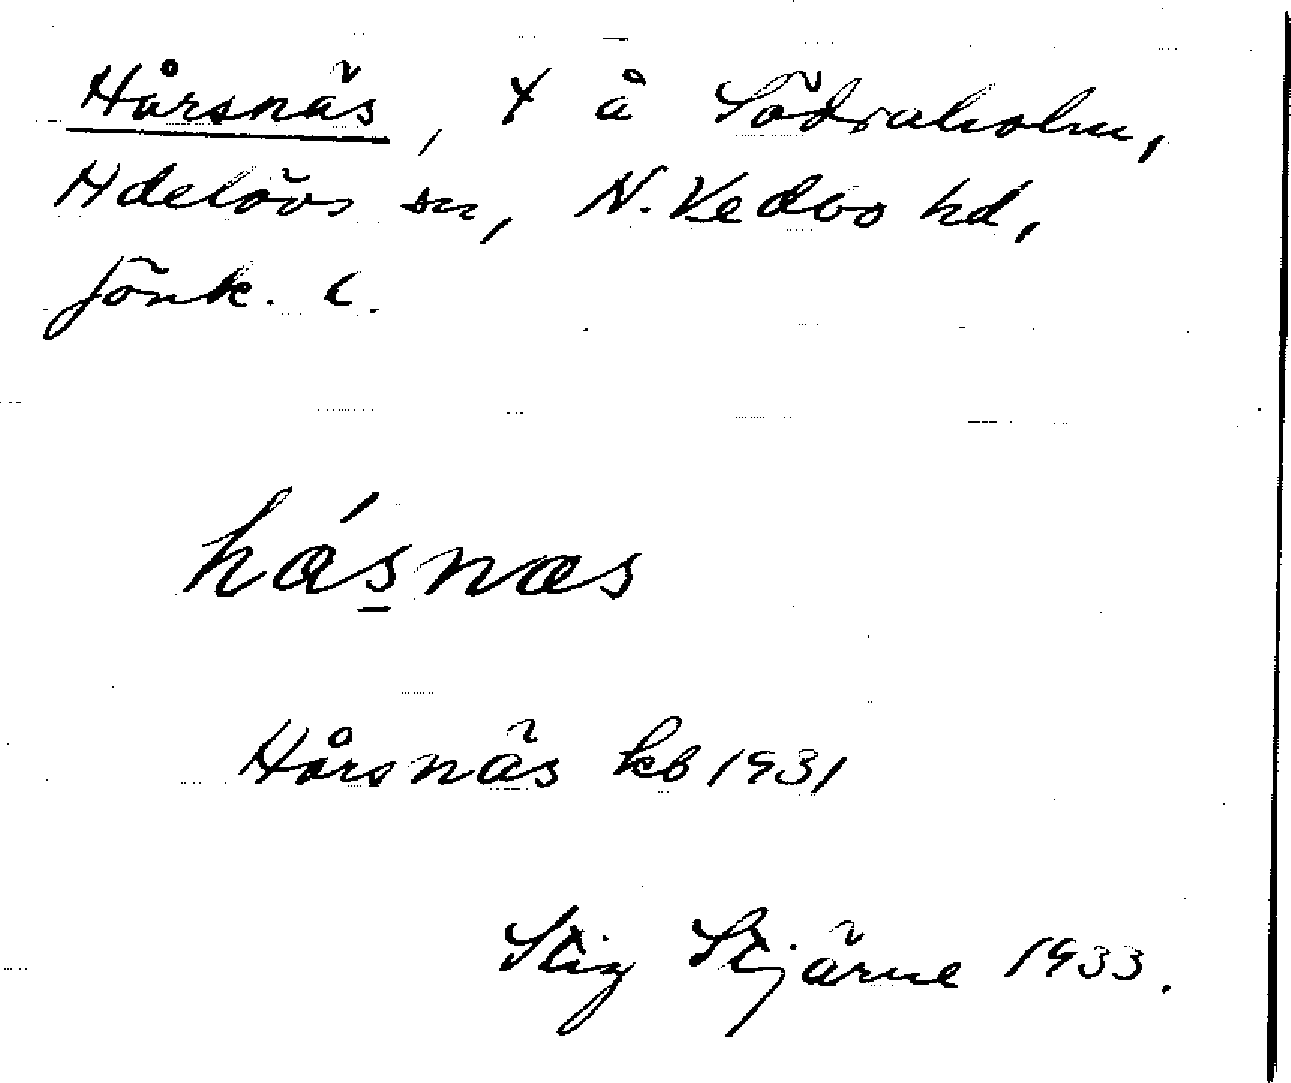 Hårsnäs, t å Södraholm,
Adelövs sn, N. Vedbo hd,
Jönk. l.
hásnas
Hårsnäs kb 1931
Stig Stjärne 1933.